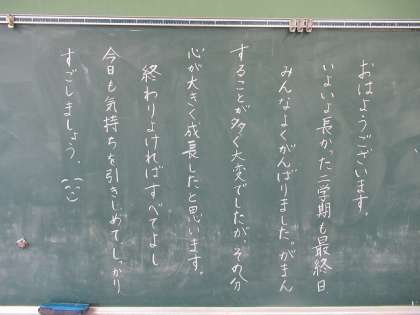 おはようございます。
いよいよ長かった二学期も最終日
みんなよくがんばりました。がまん
することが多く大変でしたが、その分
心が大きく成長したと思います。
終わりよければすべてよし
今日も気持ちを引きしめて、しっかり
すごしましょう。